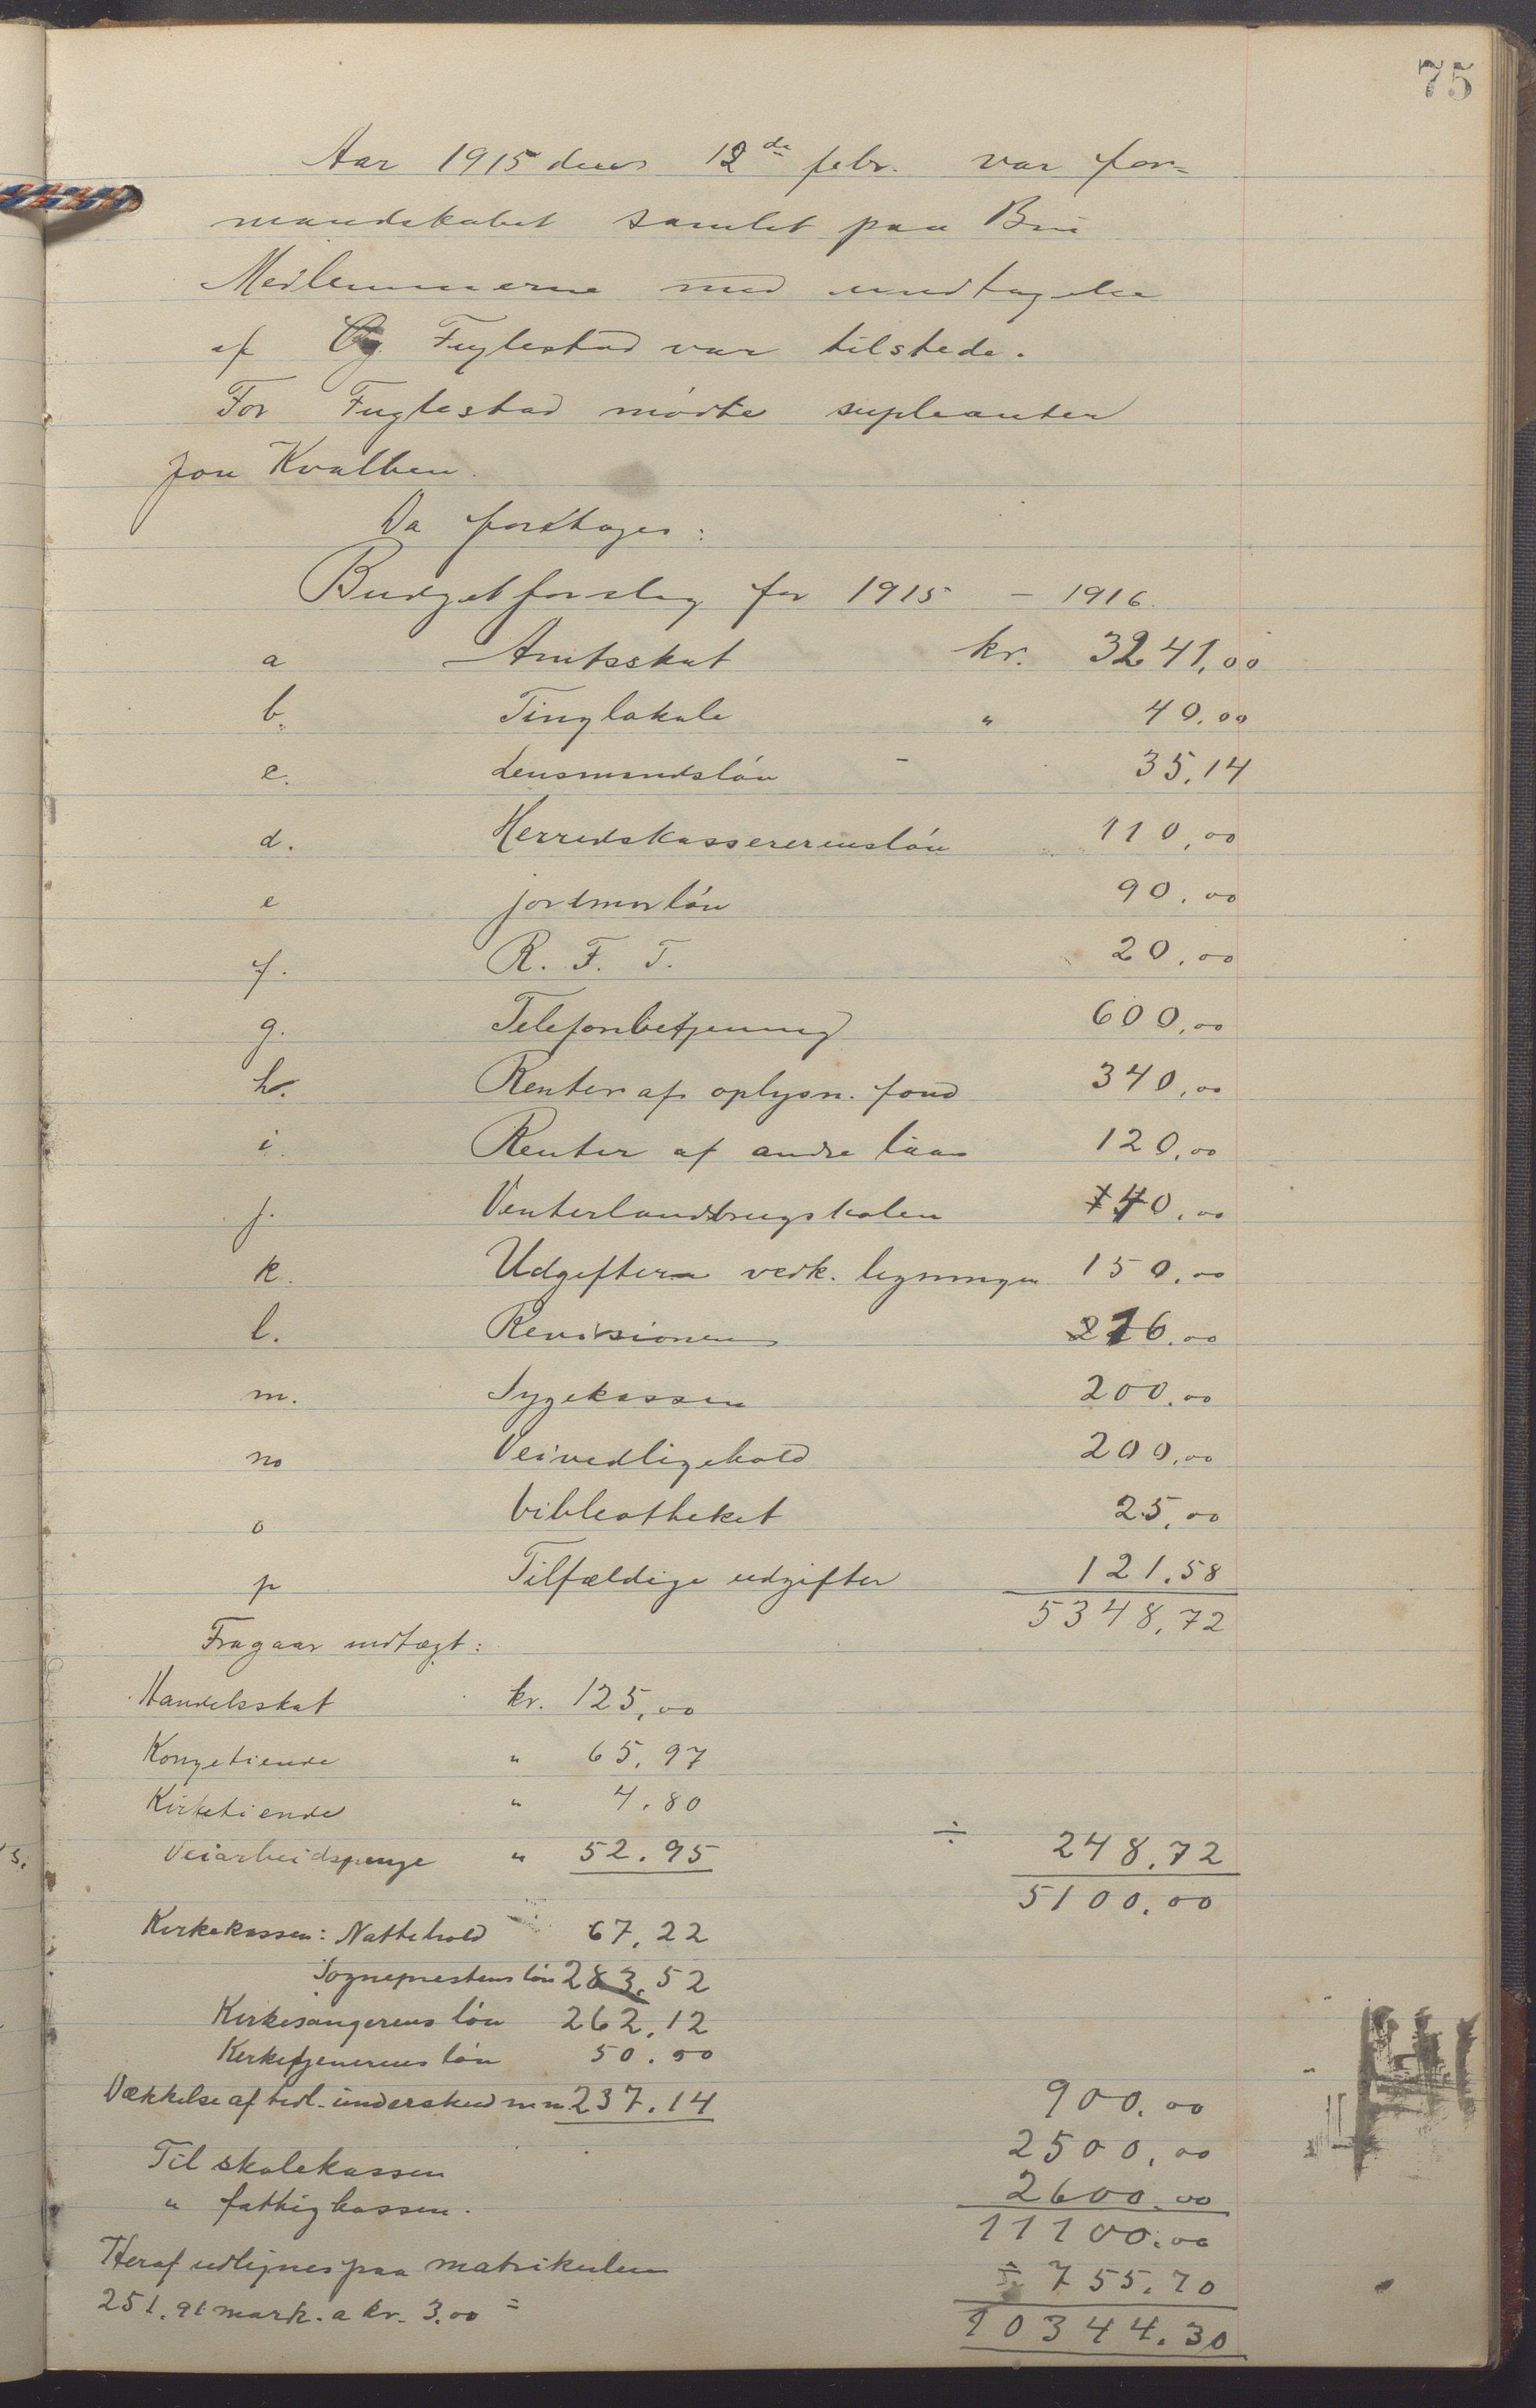 75
Aar 1915 den 12de febr. var for=
mandskabet samlet paa Bru
Medlemmerne med undtagelse
af Og. Fuglestad var tilstede.
For Fuglestad mødte supleanten
Jon Kvalben.
Da foretoges:
Budgetforslag for 1915 – 1916.
a Amtsskat kr. 3241,00
b. Tinglokale " 40.00
c. Lensmandsløn - 35,14
d. Herredskassererensløn 110,00
e jordmorløn 90.00
f. R. F. T. 20.00
g. Telefonbetjening 600,00
h. Renter af oplysn. fond 340,00
i. Renter af andre laan 120,00
j. Vinterlandbrugskolen 40,00
k. Udgifter vedk. ligningen 150.00
l. Revisionen 16.00
m. Sygekassen 200.00
n Veivedligehold 200,00
o bibleotheket 25,00
p Tilfældige udgifter 121.58
5348,72
Fragaar indtægt:
Handelsskat kr. 125,00
Kongetiende " 65.97
Kirketiende " 4.80
Veiarbeidspenge " 52.95 ÷ 248,72
5100.00
Kirkekassen: Nattehold 67,22
Sogneprestens løn 283,52
Kirkesangerens løn 262,12
Kirketjenerens løn 50.00
Dækkelse af tidl. underskud m m 237.14 900.00
Til skolekassen 2500,00
" fattigkassen. 2600.00
11100.00
Heraf udlignes paa matrikulen ÷ 755.70
251.91 mark. a kr. 3.00 =
10344.30